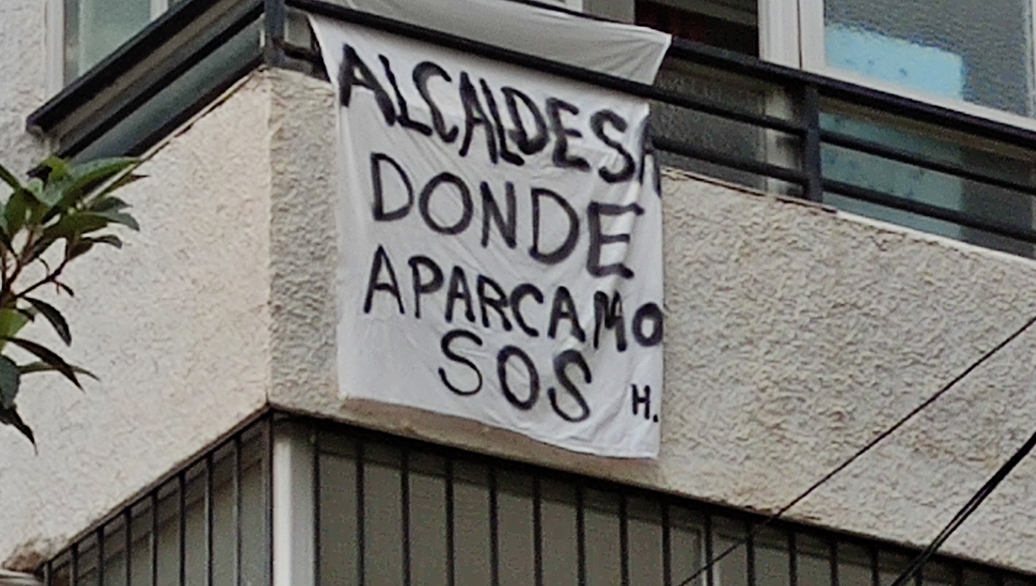 ALCALDESA
DONDE
APARCAMO
SOS
H.